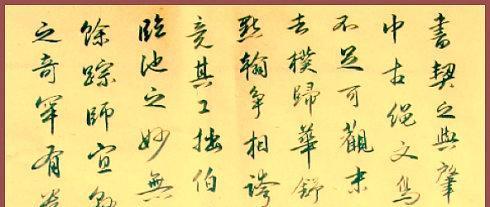 書契之興肇
中古繩文鳥
不足可觀末
去樸歸華舒
點翰爭相誇
竞其工拙伯
臨池之妙無
餘踪師宜
之奇罕有